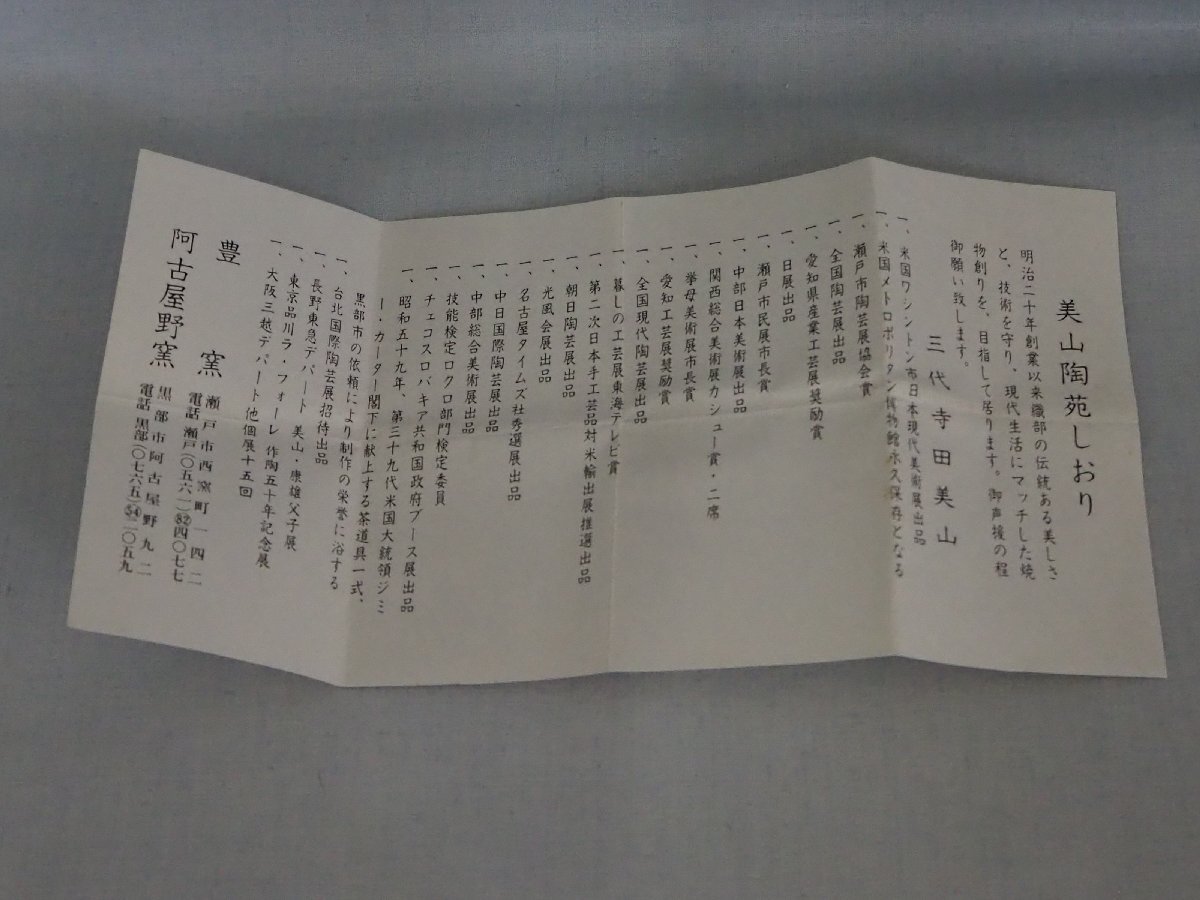 美山陶苑しおり
明治二十年創業以来織部の伝統ある美しさ
と、技術を守り、現代生活にマッチした焼
物創りを、目指して居ります。御声援の程
御願い致します。
三代寺田美山
一、米国ワシントン市日本現代美術展出品
一、米国メトロポリタン博物館永久保存となる
一、瀬戸市陶芸展協会賞
一、全国陶芸展出品
一、愛知県産業工芸展奨励賞
一、日展出品
一、瀬戸市民展市長賞
一、中部日本美術展出品
一、関西総合美術展カシュー賞・二席
一、挙母美術展市長賞
一、愛知工芸展奨励賞
一、全国現代陶芸展出品
一、暮しの工芸展東海テレビ賞
一、第二次日本手工芸品対米輸出展推選出品
一、朝日陶芸展出品
一、光風会展出品
一、名古屋タイムズ社秀選展出品
一、中日国際陶芸展出品
一、中部総合美術展出品
一、技能検定ロクロ部門検定委員
一、チェコスロバキア共和国政府ブース展出品
一、昭和五十九年、第三十九代米国大統領ジミ
ー・カーター閣下に献上する茶道具一式、
黒部市の依頼により制作の栄誉に浴する
一、台北国際陶芸展招待出品
一、長野東急デパート 美山・康雄父子展
一、東京品川ラ・フォーレ 作陶五十年記念展
一、大阪三越デパート他個展十五回
豊窯 瀬戸市西窯町一四二
電話 瀬戸(〇五六一)82四〇七七
阿古屋野窯 黒部市阿古屋野九二
電話 黒部(〇七六五)54二〇五九